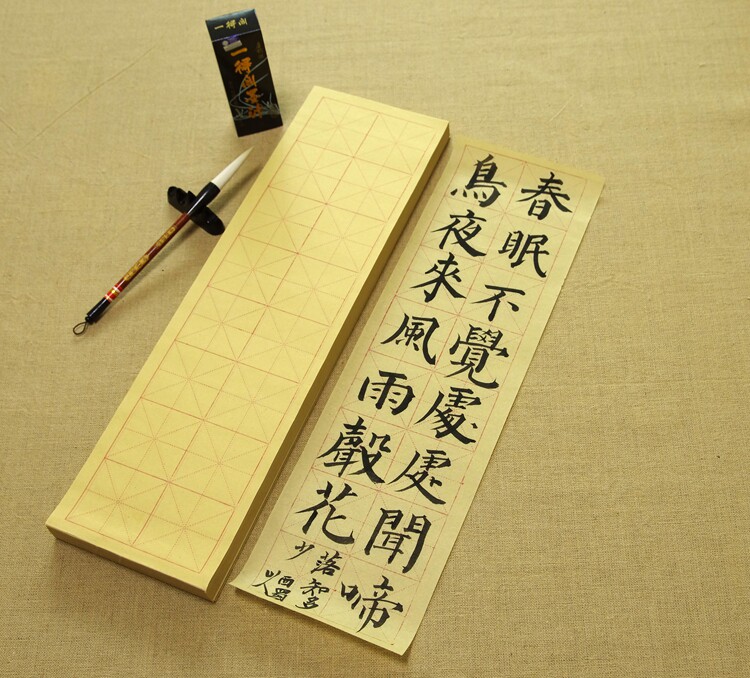 一得阁
一得阁墨汁
春眠不覺處處聞啼
鳥夜來風雨聲花
落知多
少西蜀